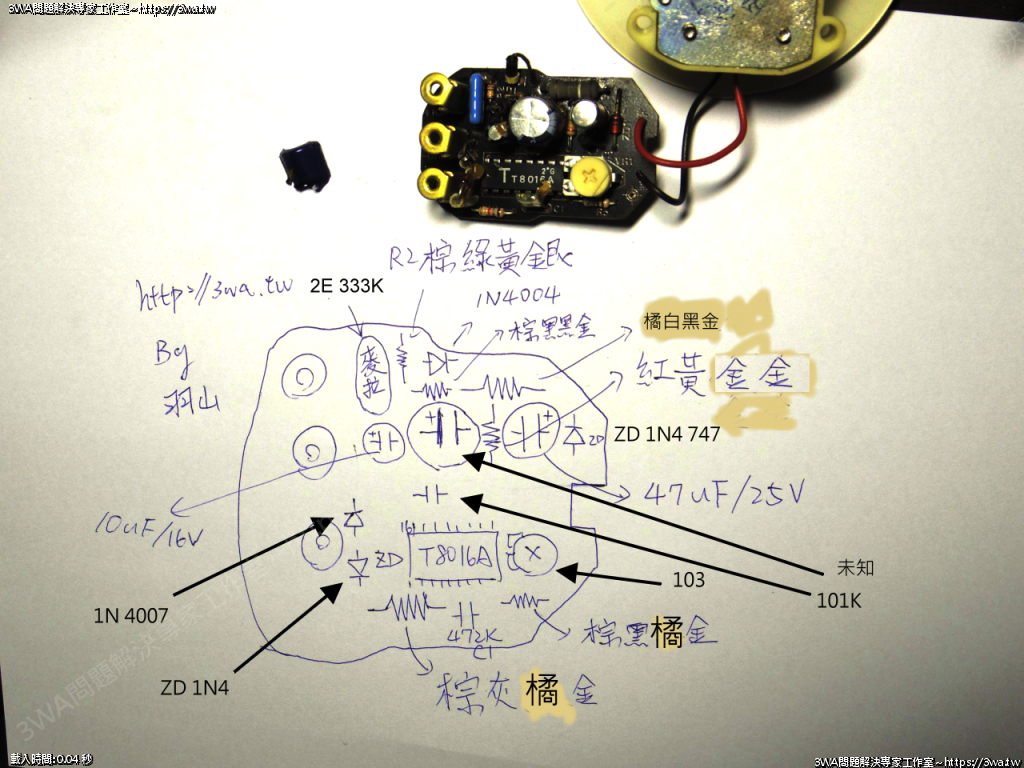 3WA問題解決專家工作室~https://3wa.tw
T T8016A
2*G
R2棕綠黃銀
http://3wa.tw
2E 333K
1N4004
棕黑黑金
橘白黑金
By
羽山
麥拉
紅黃金金
ZD
ZD 1N4 747
47uF/25V
10uF/16V
ZD
T8016A
未知
103
101K
1N 4007
472K
C1
棕黑橘金
ZD 1N4
棕灰橘金
3WA問題解決專家工作室
載入時間:0.04 秒
3WA問題解決專家工作室~https://3wa.tw